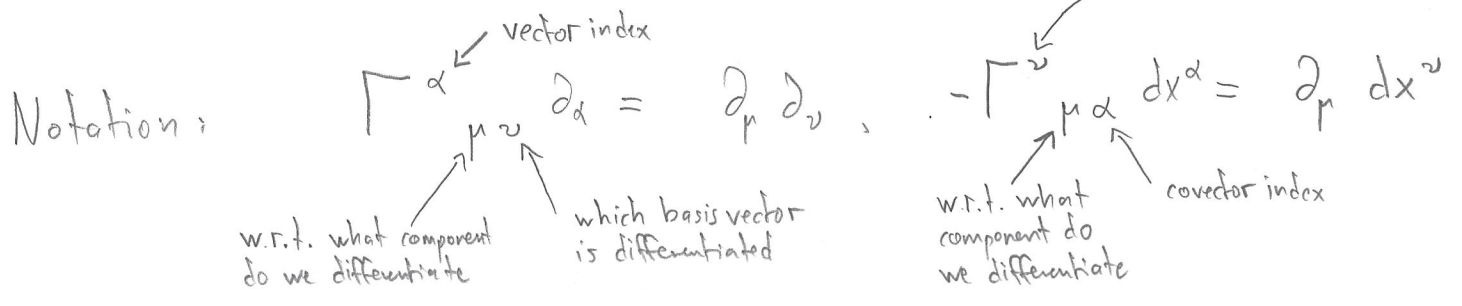 vector index
Notation: Γ^α_{μν} ∂_α = ∂_μ ∂_ν , -Γ^ν_{μα} dx^α = ∂_μ dx^ν
w.r.t. what component
do we differentiate
which basis vector
is differentiated
w.r.t. what
component do
we differentiate
covector index